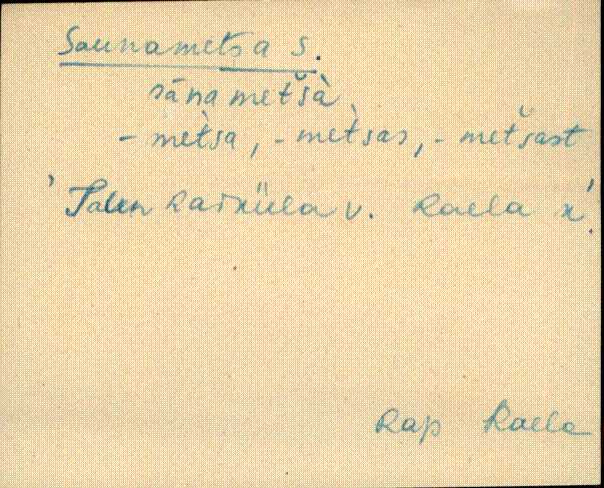 Saunametsa s.
sānametšà
- metsa, - metsas, - metšast
'Talu Raiküla v. Raela k'.
Rap Raela